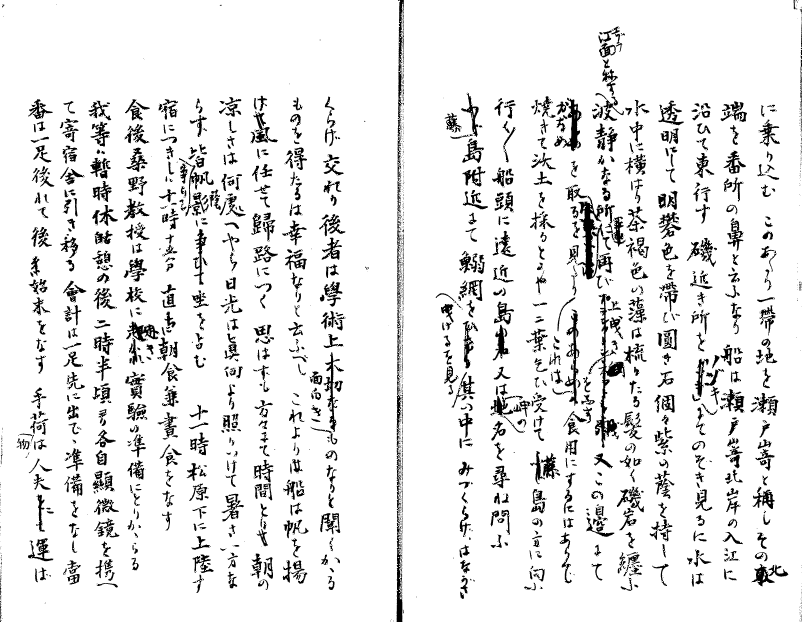 に乗り込む このあたり一帯の地を瀬戸崎と称しその北
端を番所の鼻と云ふなり 船は瀬戸崎北岸の入江に
沿ひて東行す 磯近き所をノゾキにてのぞき見るに水は
透明にして明礬色を帯び圓き石個々紫の蔭を持して
水中に横はり茶褐色の藻は梳りたる髪の如く磯岩を纏ふ
波静かなる所にて再び 又この邊にて
かぢめを取るを見 これは 食用にするにはあらで
焼きて沃土を採るとかや 一二葉乞ひ受けて藤島の方に向ふ
行く〱船頭に遠近の島 又は岬の名を尋ね問ふ
藤島附近にて鰯網を曳けるを見る 其の中に みづくらげ、はながさ
くらげ交れり後者は學術上面白きものなりと聞くかゝる
ものを得たるは幸福なりと云ふべし これより船は帆を揚
げ風に任せて歸路につく 思はずも方々にて時間とりせば朝の
涼しさは何處へやら日光は眞向より照りつけて暑さ一方な
らず、皆帆影に 座を占む 十一時松原下に上陸す
宿につきしは十一時十五分 直ちに朝食兼晝食をなす
食後桑野教授は學校に 實驗の準備にとりかゝる
我等は暫時休憩の後二時半頃より各自顯微鏡を携へ
て寄宿舎に引き移る 會計は一足先に出で、準備をなし當
番は一足後れて後の始末をなす 手荷物は人夫 運ば